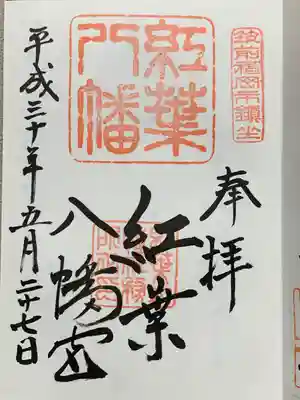 筑前福岡市鎮坐
奉拝
紅葉八幡
紅葉
八幡宮
平成三十年五月二十七日